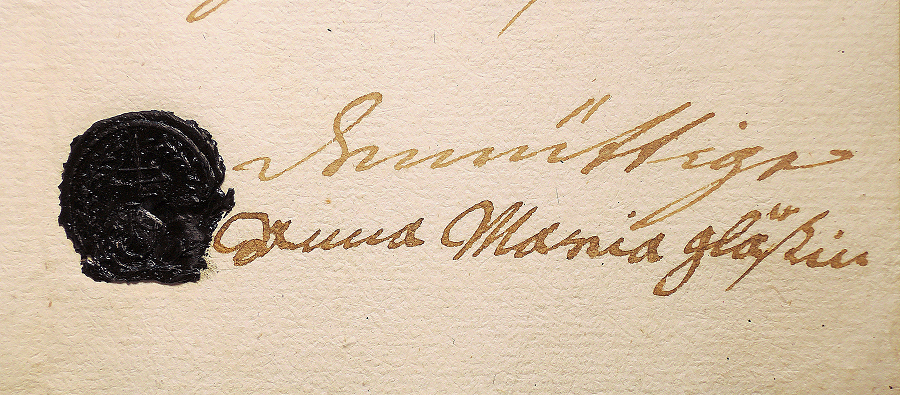 Demüttige
Anna Maria gläßin